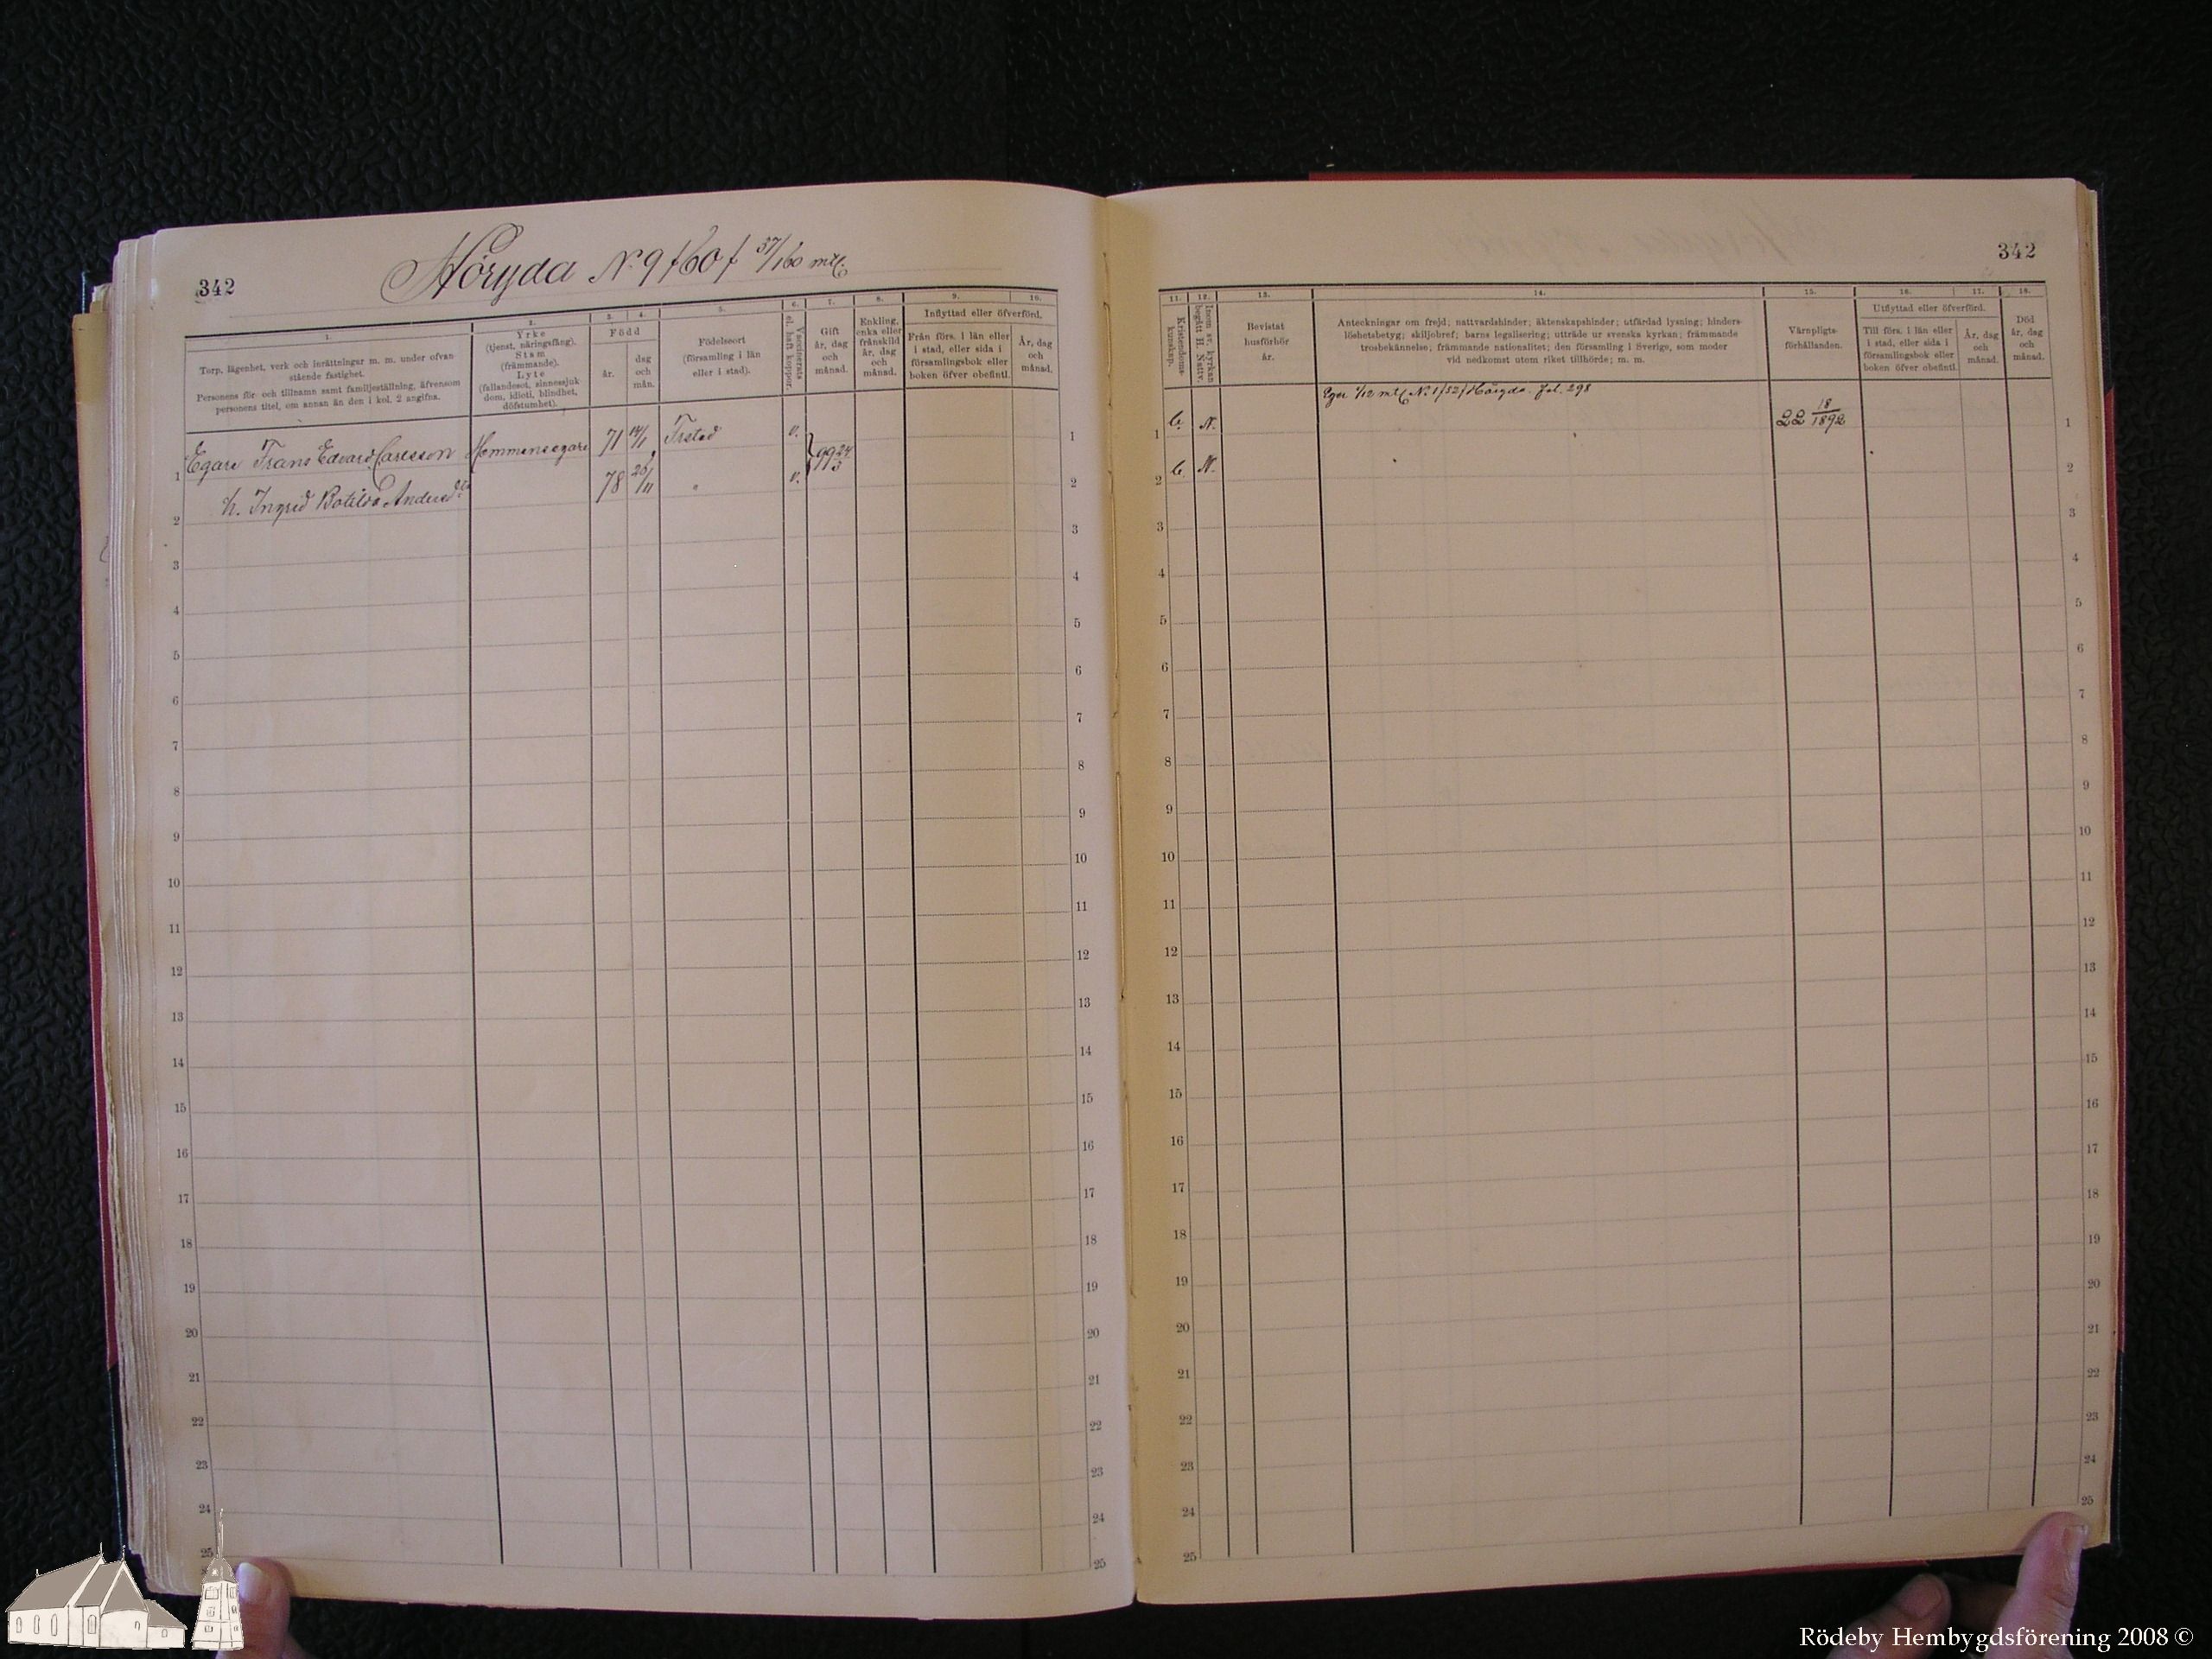 342
Höryda N:9 /60/ 37/160 mtl.
1.
Torp, lägenhet, verk och inrättningar m. m. under ofvan
stående fastighet.
Personens för- och tillnamn samt familjeställning, äfvensom
personens titel, om annan än den i kol. 2 angifna.
2.
Yrke
(tjenst, näringsfång).
Stam
(främmande).
Lyte
(fallandesot, sinnessjuk-
dom, idioti, blindhet,
döfstumhet).
3. 4.
Född
år.
dag
och
mån.
5.
Födelseort
(församling i län
eller i stad).
6.
Vaccinerats
el. haft koppor.
7.
Gift
år, dag
och
månad.
8.
Enkling,
enka eller
frånskild
år, dag
och
månad.
9. 10.
Inflyttad eller öfverförd.
Från förs. i län eller
i stad, eller sida i
församlingsbok eller
boken öfver obefintl.
År, dag
och
månad.
1 Egare Frans Edvard Carlsson Hemmansegare 71 14/1 Frstad v. } 99 24/3 1
2 h. Ingrid Botilda Andersdtr 78 28/11 " v. 2
3 3
4 4
5 5
6 6
7 7
8 8
9 9
10 10
11 11
12 12
13 13
14 14
15 15
16 16
17 17
18 18
19 19
20 20
21 21
22 22
23 23
24 24
25 25
342
11.
Kristendoms-
kunskap.
12.
Inom sv. kyrkan
begått H. Nattv.
13.
Bevistat
husförhör
år.
14.
Anteckningar om frejd; nattvardshinder; äktenskapshinder; utfärdad lysning; hinders-
löshetsbetyg; skiljobref; barns legalisering; utträde ur svenska kyrkan; främmande
trosbekännelse; främmande nationalitet; den församling i Sverige, som moder
vid nedkomst utom riket tillhörde; m. m.
15.
Värnpligts-
förhållanden.
16. 17.
Utflyttad eller öfverförd.
Till förs. i län eller
i stad, eller sida i
församlingsbok eller
boken öfver obefintl.
År, dag
och
månad.
18.
Död
år, dag
och
månad.
Eger 1/12 mtl N:o 1/52/ Höryda. fol. 298
1 b. N. 22 18/1892 1
2 b. N. 2
3 3
4 4
5 5
6 6
7 7
8 8
9 9
10 10
11 11
12 12
13 13
14 14
15 15
16 16
17 17
18 18
19 19
20 20
21 21
22 22
23 23
24 24
25 25
Rödeby Hembygdsförening 2008 ©